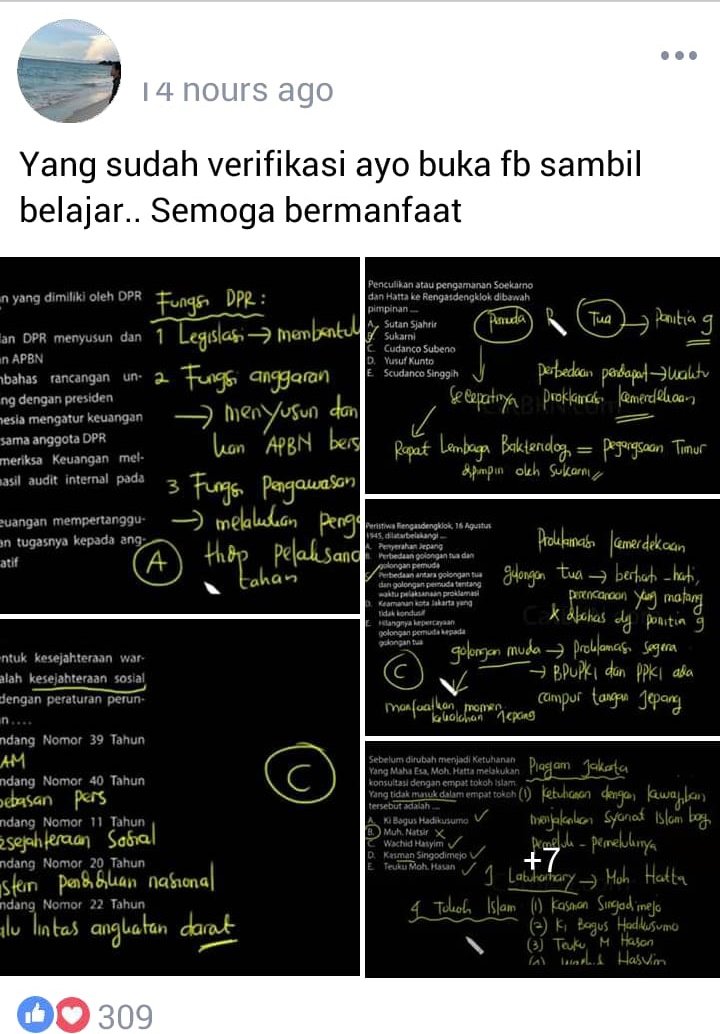 14 hours ago
Yang sudah verifikasi ayo buka fb sambil
belajar.. Semoga bermanfaat
n yang dimiliki oleh DPR
an DPR menyusun dan
n APBN
bahas rancangan un-
ng dengan presiden
nesia mengatur keuangan
sama anggota DPR
meriksa Keuangan mel-
asil audit internal pada
euangan mempertanggu-
an tugasnya kepada ang-
atif
Fungsi DPR :
1 Legislasi → membentuk
2 Fungsi anggaran
→ menyusun dan
kan APBN bers
3 Fungsi Pengawasan
→ melakukan peng
thdp pelaksana
tahan
A
Penculikan atau pengamanan Soekarno
dan Hatta ke Rengasdengklok dibawah
pimpinan ...
A. Sutan Sjahrir
Sukarni
C. Cudanco Subeno
D. Yusuf Kunto
E. Scudanco Singgih
Pemuda
Tua → Panitia 9
perbedaan pendapat → waktu
Secepatnya Proklamasi kemerdekaan
Rapat Lembaga Bakteriologi = pegangsaan Timur
dipimpin oleh Sukarni
Peristiwa Rengasdengklok, 16 Agustus
1945, dilatarbelakangi ...
A. Penyerahan Jepang
B. Perbedaan golongan tua dan
golongan pemuda
Perbedaan antara golongan tua
dan golongan pemuda tentang
waktu pelaksanaan proklamasi
D. Keamanan kota Jakarta yang
tidak kondusif
E. Hilangnya kepercayaan
golongan pemuda kepada
golongan tua
Proklamasi kemerdekaan
golongan tua → berhati-hati,
perencanaan yang matang
X dibahas dg panitia 9
golongan muda → proklamasi segera
→ BPUPKI dan PPKI ada
campur tangan Jepang
C
manfaatkan momen
kekalahan Jepang
ntuk kesejahteraan war-
alah kesejahteraan sosial
dengan peraturan perun-
n ....
ndang Nomor 39 Tahun
AM
ndang Nomor 40 Tahun
ebebasan Pers
ndang Nomor 11 Tahun
esejahteraan Sosial
ndang Nomor 20 Tahun
istem pendidikan nasional
ndang Nomor 22 Tahun
alu lintas angkatan darat
C
Sebelum dirubah menjadi Ketuhanan
Yang Maha Esa, Moh. Hatta melakukan
konsultasi dengan empat tokoh Islam.
Yang tidak masuk dalam empat tokoh
tersebut adalah ...
A. Ki Bagus Hadikusumo
B. Muh. Natsir X
C. Wachid Hasyim
D. Kasman Singodimejo
E. Teuku Moh. Hasan
Piagam Jakarta
(1) ketuhanan dengan kewajiban
menjalankan syariat Islam bagi
pemeluk-pemeluknya
Latuharhary → Moh Hatta
4 Tokoh Islam (1) Kasman Singodimejo
(2) Ki Bagus Hadikusumo
(3) Teuku M Hasan
(4) Wachid Hasyim
+7
309